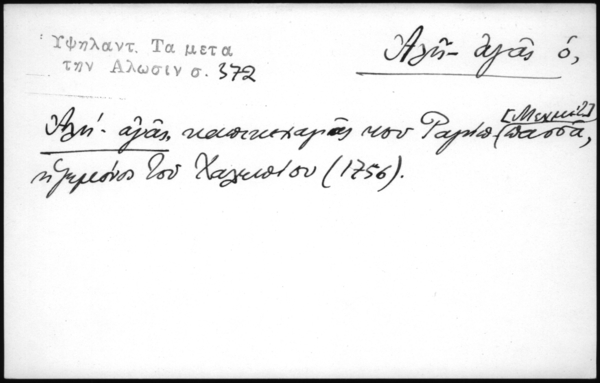 Υψηλαντ. Τα μετα
την Αλωσιν σ. 372
Ἀλῆ-ἀγᾶς ὁ,
Ἀλῆ-ἀγᾶς, καπικεχαγιᾶς του Ραγίπ [Μεχμέτ] πασσᾶ,
ἡγεμόνος τοῦ Χαλεπίου (1756).